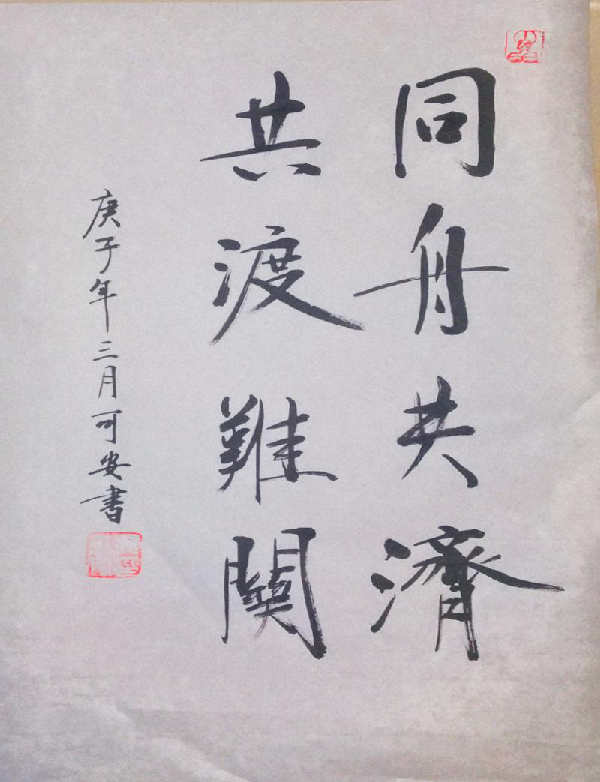 同舟共濟
共渡難關
庚子年三月可安書